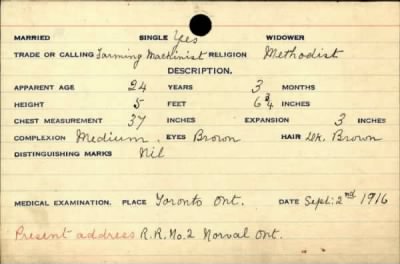 MARRIED SINGLE Yes WIDOWER
TRADE OR CALLING Farming Machinist RELIGION Methodist
DESCRIPTION.
APPARENT AGE 24 YEARS 3 MONTHS
HEIGHT 5 FEET 6 3/4 INCHES
CHEST MEASUREMENT 37 INCHES EXPANSION 3 INCHES
COMPLEXION Medium EYES Brown HAIR Dk. Brown
DISTINGUISHING MARKS Nil
MEDICAL EXAMINATION. PLACE Toronto Ont. DATE Sept: 2nd 1916
Present address R.R. No. 2 Norval Ont.